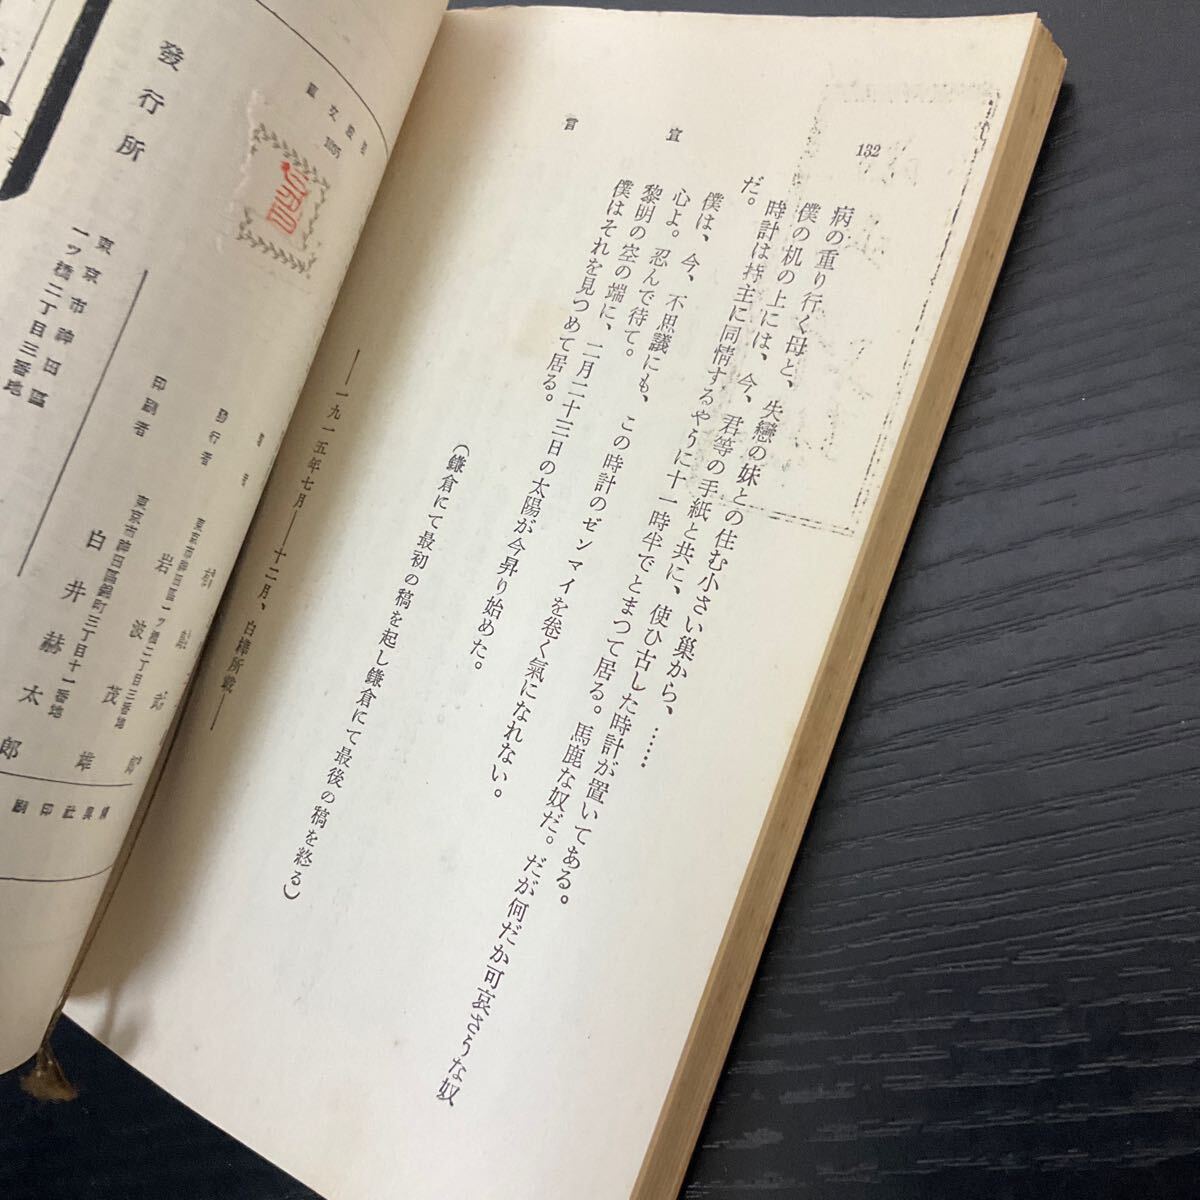 132
宣言
病の重り行く母と、失戀の妹との住む小さい巣から、……
僕の机の上には、今、君等の手紙と共に、使ひ古した時計が置いてある。
時計は持主に同情するやうに十一時半でとまつて居る。馬鹿な奴だ。だが何だか可哀さうな奴
だ。
僕は、今、不思議にも、この時計のゼンマイを卷く氣になれない。
心よ。忍んで待て。
黎明の空の端に、二月二十三日の太陽が今昇り始めた。
僕はそれを見つめて居る。
(鎌倉にて最初の稿を起し鎌倉にて最後の稿を終る)
——一九一五年七月——十二月、白樺所載——
發行者
東京市神田區一ツ橋二丁目三番地
岩波茂雄
印刷者
東京市神田區錦町三丁目十一番地
白井赫太郎
東京市神田區
一ツ橋二丁目三番地
發行所